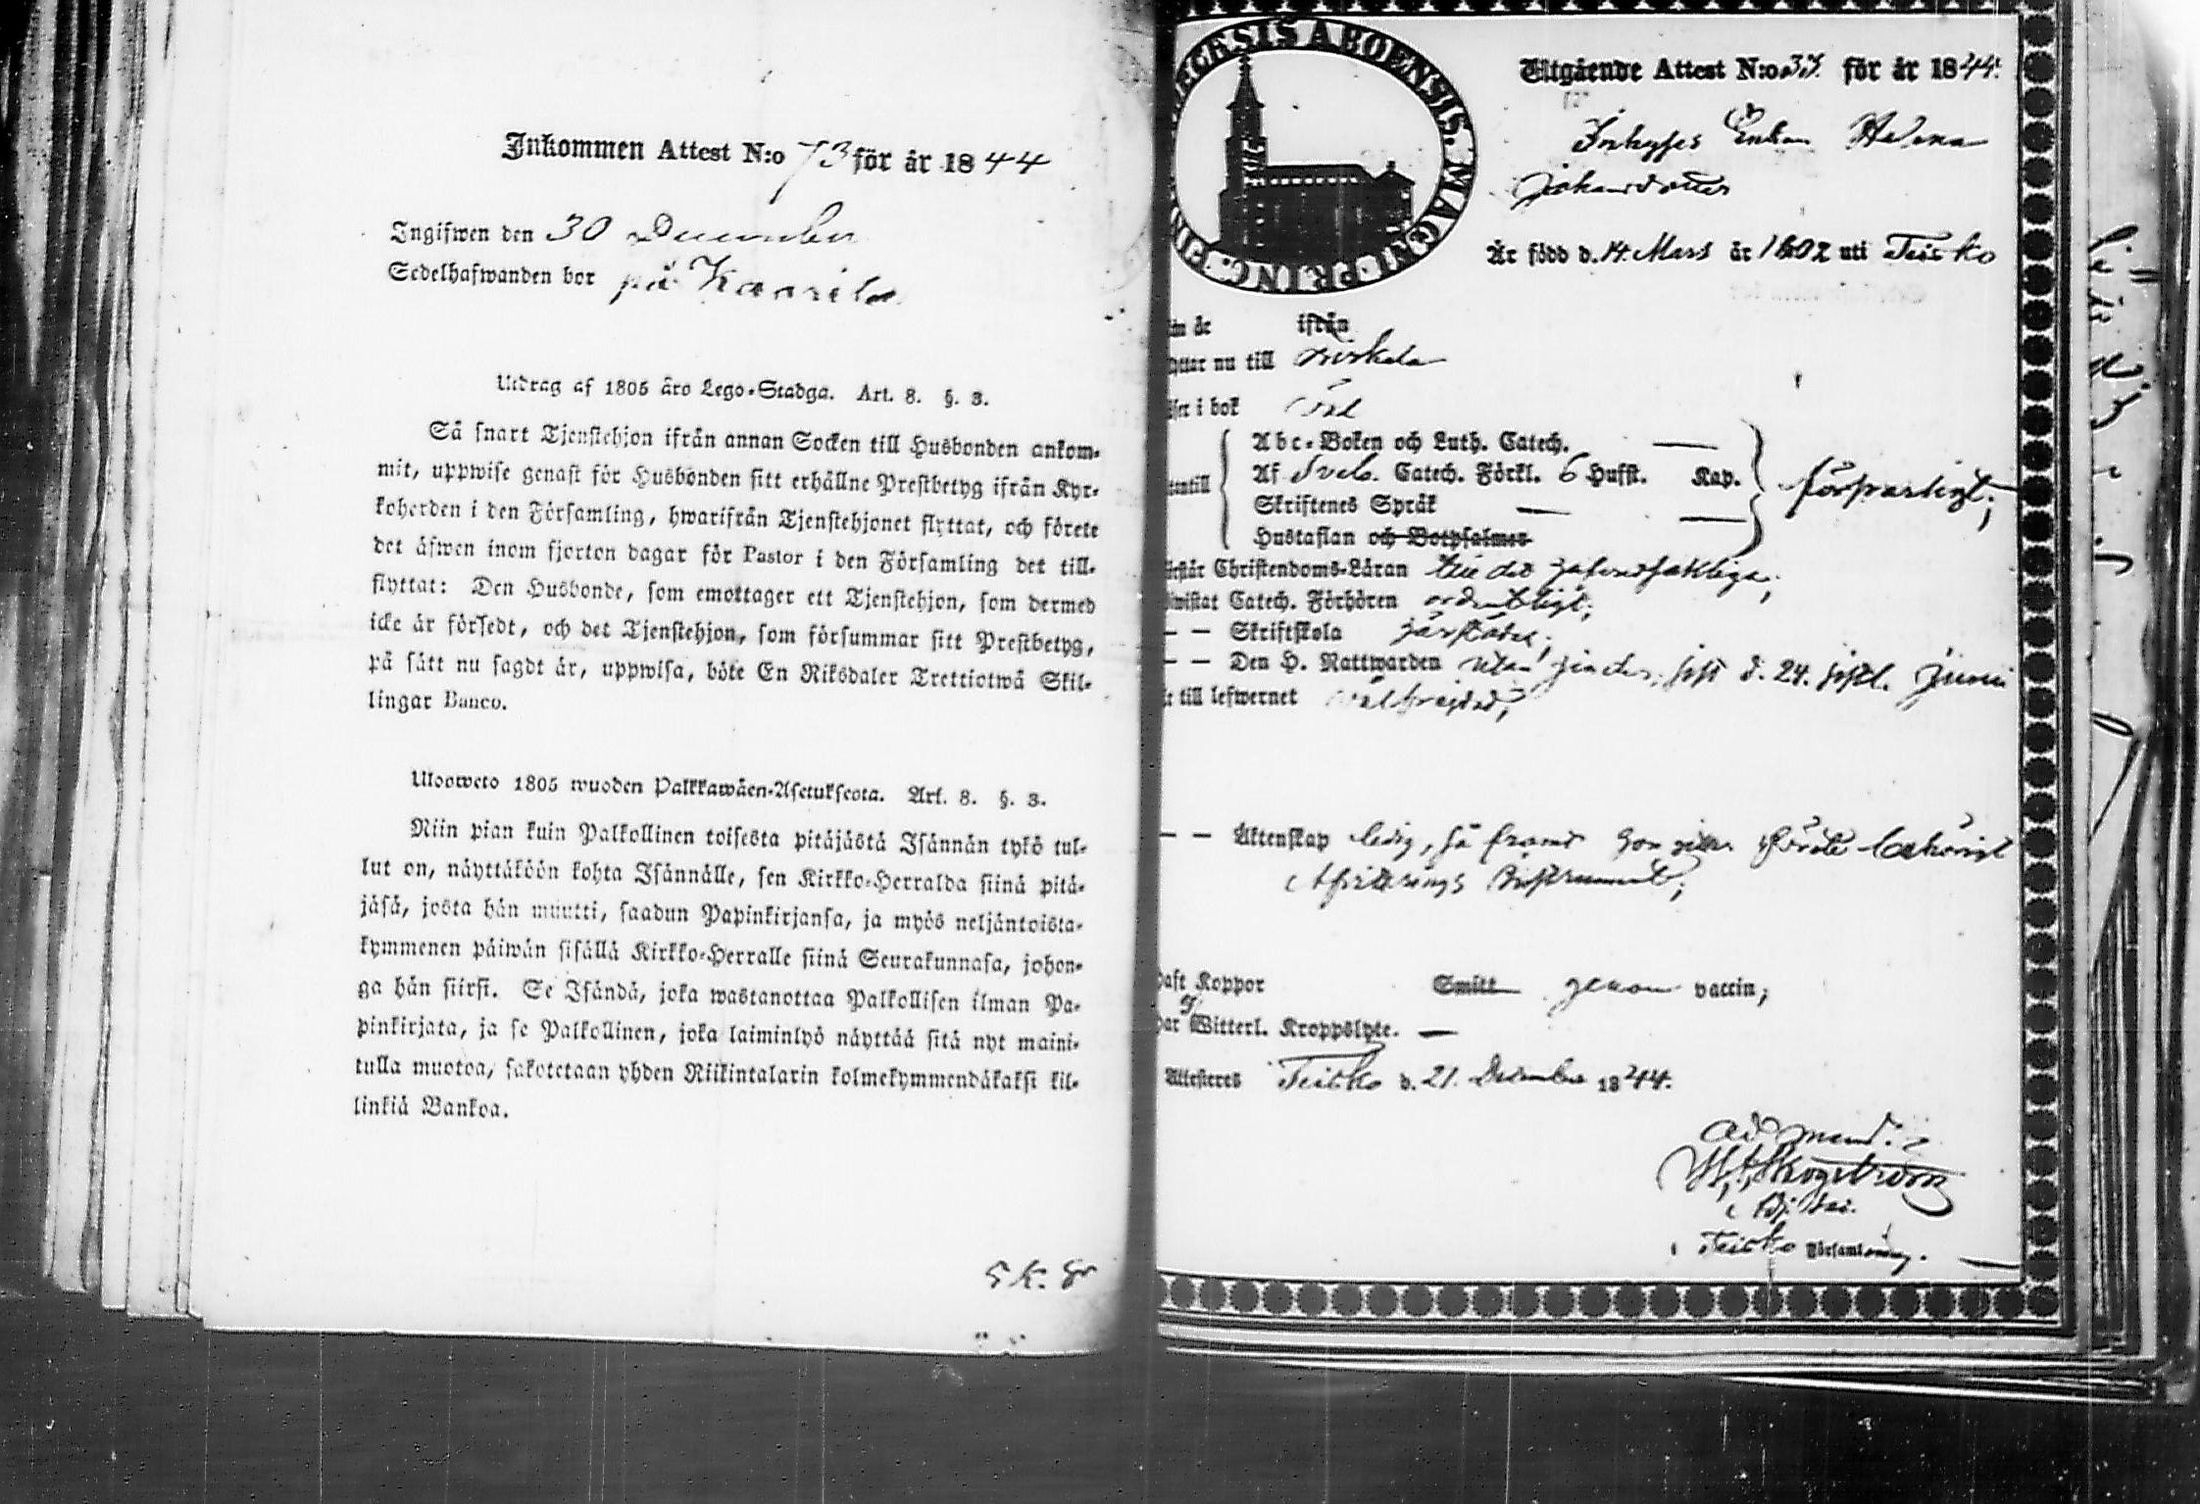 Inkommen Attest N:o 73 för år 1844
Ingifwen den 30 December
Sedelhafwanden bor på Kaarila
Utdrag af 1805 åro Lego-Stadga. Art. 8. §. 3.
Så snart Tjenstehjon ifrån annan Socken till Husbonden ankom-
mit, uppwise genast för Husbonden sitt erhållne Prestbetyg ifrån Kyr-
koherden i den Församling, hwarifrån Tjenstehjonet flyttat, och förete
det åfwen inom fjorton dagar för Pastor i den Församling det till-
flyttat: Den Husbonde, som emottager ett Tjenstehjon, som dermed
icke är försedt, och det Tjenstehjon, som försummar sitt Prestbetyg,
på sätt nu sagdt är, uppwisa, böte En Riksdaler Trettiotwå Skil-
lingar Banco.
Ulooweto 1805 wuoden Palkkawäen-Asetuksesta. Art. 8. §. 3.
Niin pian kuin Palkollinen toisesta pitäjästä Isännän tykö tul-
lut on, näyttäköön kohta Isännälle, sen Kirkko-Herralda siinä pitä-
jäsä, josta hän muutti, saadun Papinkirjansa, ja myös neljäntoista-
kymmenen päiwän sisällä Kirkko-Herralle siinä Seurakunnasa, johon-
ga hän siirsi. Se Isändä, joka wastanottaa Palkollisen ilman Pa-
pinkirjata, ja se Palkollinen, joka laiminlyö näyttää sitä nyt maini-
tulla muotoa, sakotetaan yhden Riikintalarin kolmekymmendäkaksi kil-
linkiä Bankoa.
5 K. Sr
ECESIS ABOENSIS. MAGNI PRINC. FIN
Utgående Attest N:o 33. för år 1844.
Inhyses Enkan Helena
Johansdotter
Är född d. 14 Mars år 1802 uti Teisko
år ifrån
nu till Birkala
i bok väl
Abc-Boken och Luth. Catech. —
Af Sveb. Catech. Förkl. 6 Hufst. Kap.
Skriftenes Språk — —
Hustaflan och Botpsalmer
försvarligt;
Christendoms-Läran till det hufvudsakliga;
Catech. Förhören ordentligt;
— — Skriftskola
— — Den H. Nattwarden utan hinder, sist d. 24. sistl. Junii
till lefwernet välfrejdad;
— — Äktenskap ledig, så framt hon gitter förete behörigt
Afvittrings Instrument;
haft Koppor Smitt genom vaccin;
har Witterl. Kroppslyte. —
Attesteres Teisko d. 21. December 1844.
ad mand.
Skogström
Adj. Sac.
i Teisko Församling.